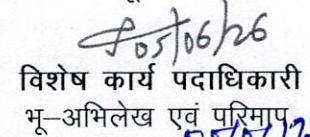 05/06/26
विशेष कार्य पदाधिकारी
भू–अभिलेख एवं परिमाप